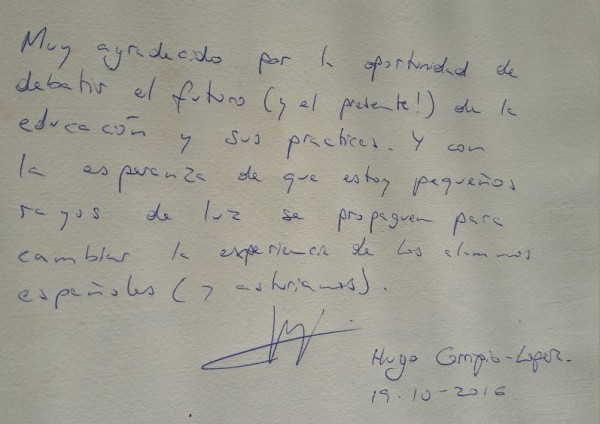 Muy agradecido por la oportunidad de
debatir el futuro (y el presente!) de la
educación y sus practicas. Y con
la esperanza de que estoy pequeños
rayos de luz se propaguen para
cambiar la experiencia de los alumnos
españoles (y asturianos).
Hugo -Lopez.
19-10-2016